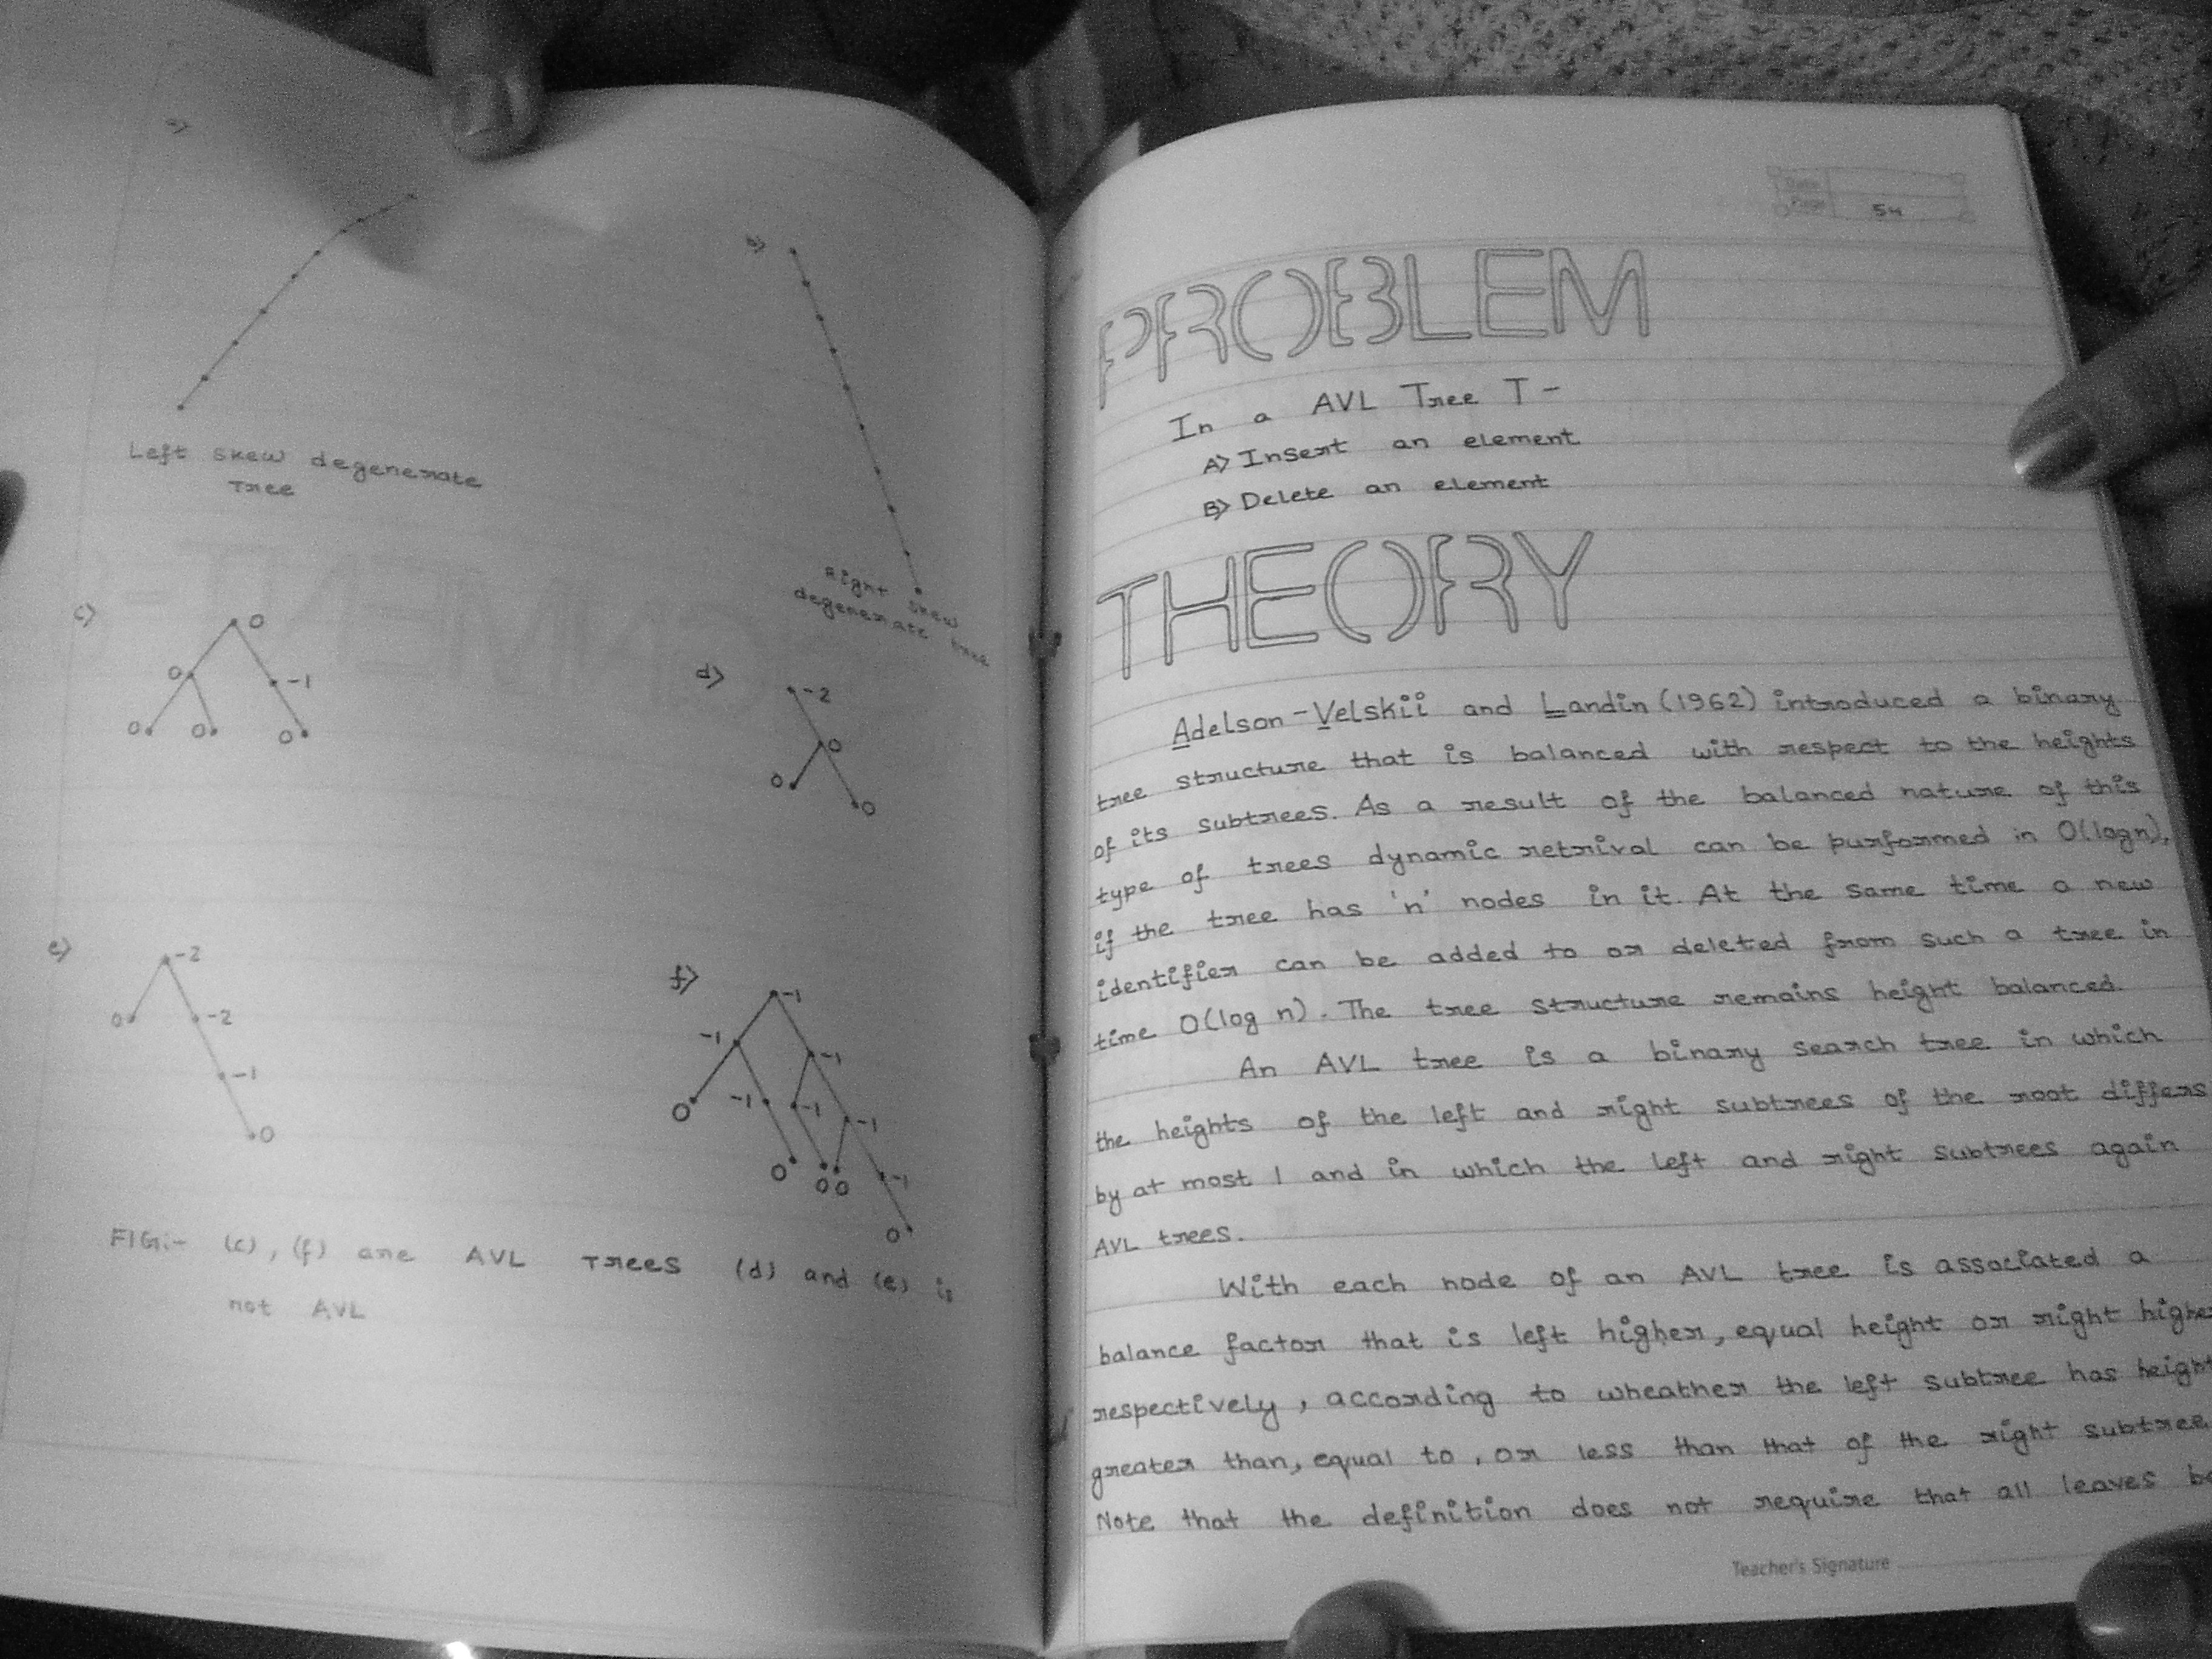 a>
b>
Left skew degenerate
Tree
Right skew
degenerate tree
c>
0
0
-1
0
0
0
d>
-2
0
0
0
e>
-2
0
-2
-1
0
f>
-1
-1
-1
0
-1
-1
-1
0
0 0
-1
0
FIG:- (c), (f) are AVL Trees (d) and (e) is
not AVL
Date
Page 54
PROBLEM
In a AVL Tree T -
A> Insert an element
B> Delete an element
THEORY
Adelson-Velskii and Landin (1962) introduced a binary
tree structure that is balanced with respect to the heights
of its subtrees. As a result of the balanced nature of this
type of trees dynamic retrival can be purformed in O(logn),
if the tree has 'n' nodes in it. At the same time a new
identifier can be added to or deleted from such a tree in
time O(log n). The tree structure remains height balanced.
An AVL tree is a binary search tree in which
the heights of the left and right subtrees of the root differs
by at most 1 and in which the left and right subtrees again
AVL trees.
With each node of an AVL tree is associated a
balance factor that is left higher, equal height or right higher
respectively, according to wheather the left subtree has height
greater than, equal to, or less than that of the right subtree.
Note that the definition does not require that all leaves be
Teacher's Signature